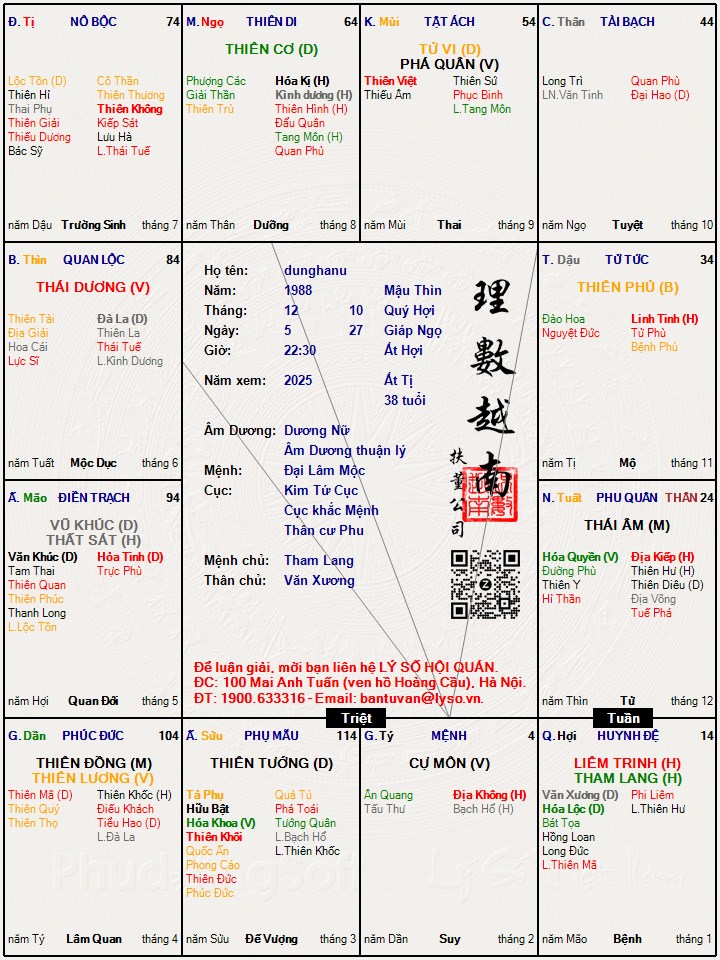 Đ. Tị NÔ BỘC 74
Lộc Tồn (D) Cô Thần
Thiên Hỉ Thiên Thương
Thai Phụ Thiên Không
Thiên Giải Kiếp Sát
Thiếu Dương Lưu Hà
Bác Sỹ L.Thái Tuế
năm Dậu Trường Sinh tháng 7
M. Ngọ THIÊN DI 64
THIÊN CƠ (D)
Phượng Các Hóa Kị (H)
Giải Thần Kình dương (H)
Thiên Trù Thiên Hình (H)
Đẩu Quân
Tang Môn (H)
Quan Phủ
năm Thân Dưỡng tháng 8
K. Mùi TẬT ÁCH 54
TỬ VI (D)
PHÁ QUÂN (V)
Thiên Việt Thiên Sứ
Thiếu Âm Phục Binh
L.Tang Môn
năm Mùi Thai tháng 9
C. Thân TÀI BẠCH 44
Long Trì Quan Phù
LN.Văn Tinh Đại Hao (D)
năm Ngọ Tuyệt tháng 10
B. Thìn QUAN LỘC 84
THÁI DƯƠNG (V)
Thiên Tài Đà La (D)
Địa Giải Thiên La
Hoa Cái Thái Tuế
Lực Sĩ L.Kình Dương
năm Tuất Mộc Dục tháng 6
Họ tên: dunghanu
Năm: 1988 Mậu Thìn
Tháng: 12 10 Quý Hợi
Ngày: 5 27 Giáp Ngọ
Giờ: 22:30 Ất Hợi
Năm xem: 2025 Ất Tị
38 tuổi
Âm Dương: Dương Nữ
Âm Dương thuận lý
Mệnh: Đại Lâm Mộc
Cục: Kim Tứ Cục
Cục khắc Mệnh
Thân cư Phu
Mệnh chủ: Tham Lang
Thân chủ: Văn Xương
理數越南
扶董公司
Để luận giải, mời bạn liên hệ LÝ SỐ HỘI QUÁN.
ĐC: 100 Mai Anh Tuấn (ven hồ Hoàng Cầu), Hà Nội.
ĐT: 1900.633316 - Email: bantuvan@lyso.vn.
T. Dậu TỬ TỨC 34
THIÊN PHỦ (B)
Đào Hoa Linh Tinh (H)
Nguyệt Đức Tử Phù
Bệnh Phù
năm Tị Mộ tháng 11
Ấ. Mão ĐIỀN TRẠCH 94
VŨ KHÚC (D)
THẤT SÁT (H)
Văn Khúc (D) Hỏa Tinh (D)
Tam Thai Trực Phù
Thiên Quan
Thiên Phúc
Thanh Long
L.Lộc Tồn
năm Hợi Quan Đới tháng 5
N. Tuất PHU QUÂN THÂN 24
THÁI ÂM (M)
Hóa Quyền (V) Địa Kiếp (H)
Đường Phù Thiên Hư (H)
Thiên Y Thiên Diêu (D)
Hỉ Thần Địa Võng
Tuế Phá
năm Thìn Tử tháng 12
Triệt
Tuần
G. Dần PHÚC ĐỨC 104
THIÊN ĐỒNG (M)
THIÊN LƯƠNG (V)
Thiên Mã (D) Thiên Khốc (H)
Thiên Quý Điếu Khách
Thiên Thọ Tiểu Hao (D)
L.Đà La
năm Tý Lâm Quan tháng 4
Ấ. Sửu PHỤ MẪU 114
THIÊN TƯỚNG (D)
Tả Phụ Quả Tú
Hữu Bật Phá Toái
Hóa Khoa (V) Tướng Quân
Thiên Khôi L.Bạch Hổ
Quốc Ấn L.Thiên Khốc
Phong Cáo
Thiên Đức
Phúc Đức
năm Sửu Đế Vượng tháng 3
G. Tý MỆNH 4
CỰ MÔN (V)
Ân Quang Địa Không (H)
Tấu Thư Bạch Hổ (H)
năm Dần Suy tháng 2
Q. Hợi HUYNH ĐỆ 14
LIÊM TRINH (H)
THAM LANG (H)
Văn Xương (D) Phi Liêm
Hóa Lộc (D) L.Thiên Hư
Bát Tọa
Hồng Loan
Long Đức
L.Thiên Mã
năm Mão Bệnh tháng 1